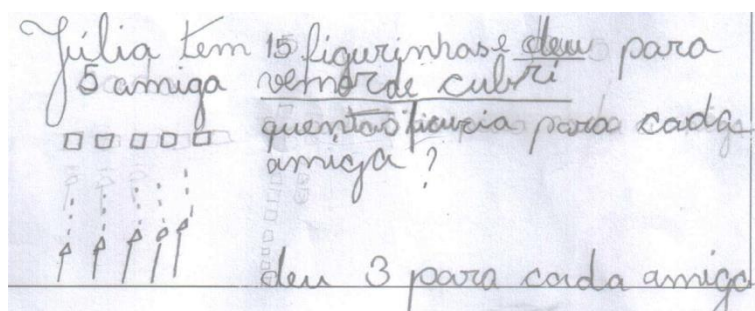 Júlia tem 15 figurinhas e deu para
5 amiga vemor de cubri
quentas ficuria para cada
amiga?
deu 3 para cada amiga